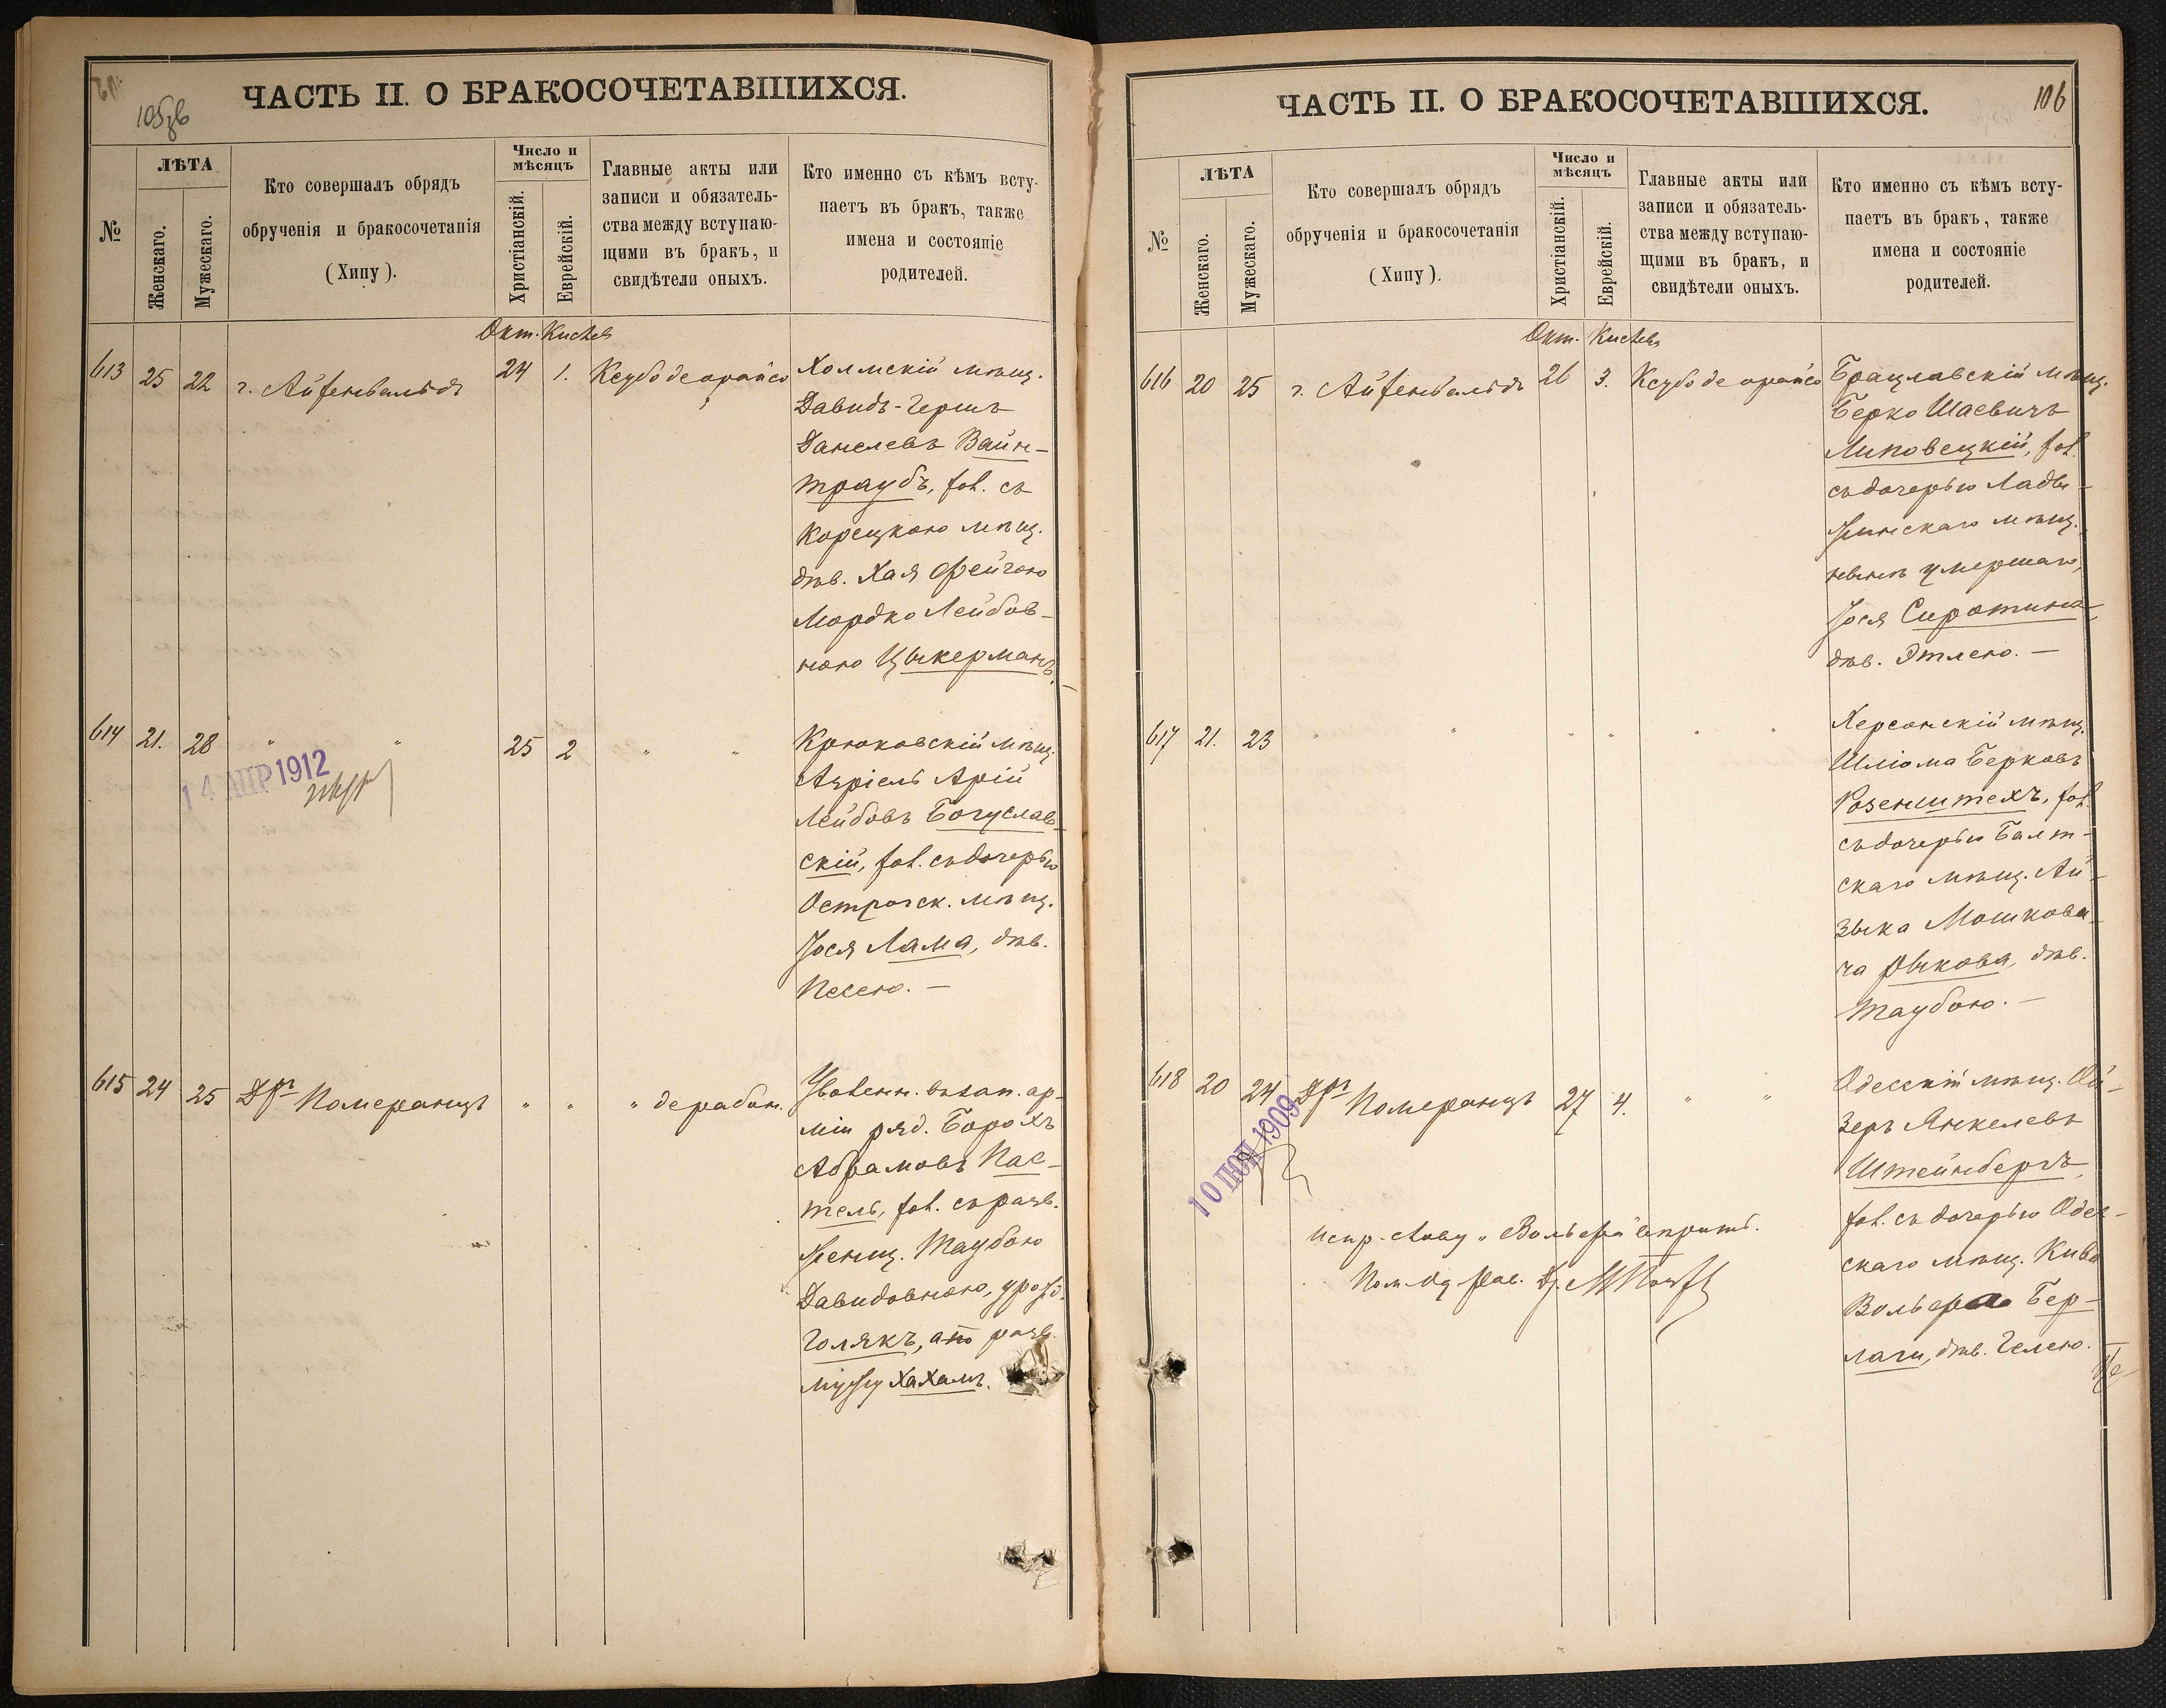 105 об
ЧАСТЬ II. О БРАКОСОЧЕТАВШИХСЯ.
№
ЛѢТА
Женскаго.
Мужескаго.
Кто совершалъ обрядъ
обрученія и бракосочетанія
(Хипу).
Число и
мѣсяцъ
Христіанскій.
Еврейскій.
Главные акты или
записи и обязатель-
ства между вступаю-
щими въ бракъ, и
свидѣтели оныхъ.
Кто именно съ кѣмъ всту-
паетъ въ бракъ, также
имена и состояніе
родителей.
Окт. Кислев
613 25 22 г. Айзенвальдъ 24 1. Ксубо деорайсо
Холмскій мѣщ.
Давидъ-Гершъ
Данелевъ Вайн-
траубъ, хол. съ
Корецкою мѣщ.
дѣв. Хая Фейгою
Мордко Лейбов-
ною Цукерманъ.
614 21. 28 " " 25 2 " "
14 АПР 1912
Крюковскій мѣщ.
Азріель Арій
Лейбовъ Богуслав-
скій, хол. съ дочерью
Острогск. мѣщ.
Іося Лама, дѣв.
Песею. —
615 24 25 Дръ Померанцъ " " " дерабон.
Уволенн. въ зап. ар-
міи ряд. Борохъ
Абрамовъ Пас-
тель, хол. съ разв.
женщ. Таубою
Давидовною, урожд.
Голякъ, а по разв.
мужу Хахамъ.
106
ЧАСТЬ II. О БРАКОСОЧЕТАВШИХСЯ.
№
ЛѢТА
Женскаго.
Мужескаго.
Кто совершалъ обрядъ
обрученія и бракосочетанія
(Хипу).
Число и
мѣсяцъ
Христіанскій.
Еврейскій.
Главные акты или
записи и обязатель-
ства между вступаю-
щими въ бракъ, и
свидѣтели оныхъ.
Кто именно съ кѣмъ всту-
паетъ въ бракъ, также
имена и состояніе
родителей.
Окт. Кислев
616 20 25 г. Айзенвальдъ 26 3. Ксубо де орайсо
Брацлавскій мѣщ.
Берко Шаевичъ
Липовецкій, хол.
съ дочерью Лады-
жинскаго мѣщ.
нынѣ умершаго,
Іося Сиротина,
дѣв. Этлею. —
617 21. 23 " " " " " "
Херсонскій мѣщ.
Шліома Берковъ
Розенштехъ, хол.
съ дочерью Балт-
скаго мѣщ. Ай-
зыка Мошкови-
ча Рыкова, дѣв.
Таубою. —
618 20 24 Дръ Померанцъ 27 4. " "
10 ІЮН 1909
Одесскій мѣщ. Ой-
зеръ Янкелевъ
Штейнбергъ,
хол. съ дочерью Одес-
скаго мѣщ. Кива
Вольфа Бер-
лаги, дѣв. Гелею.